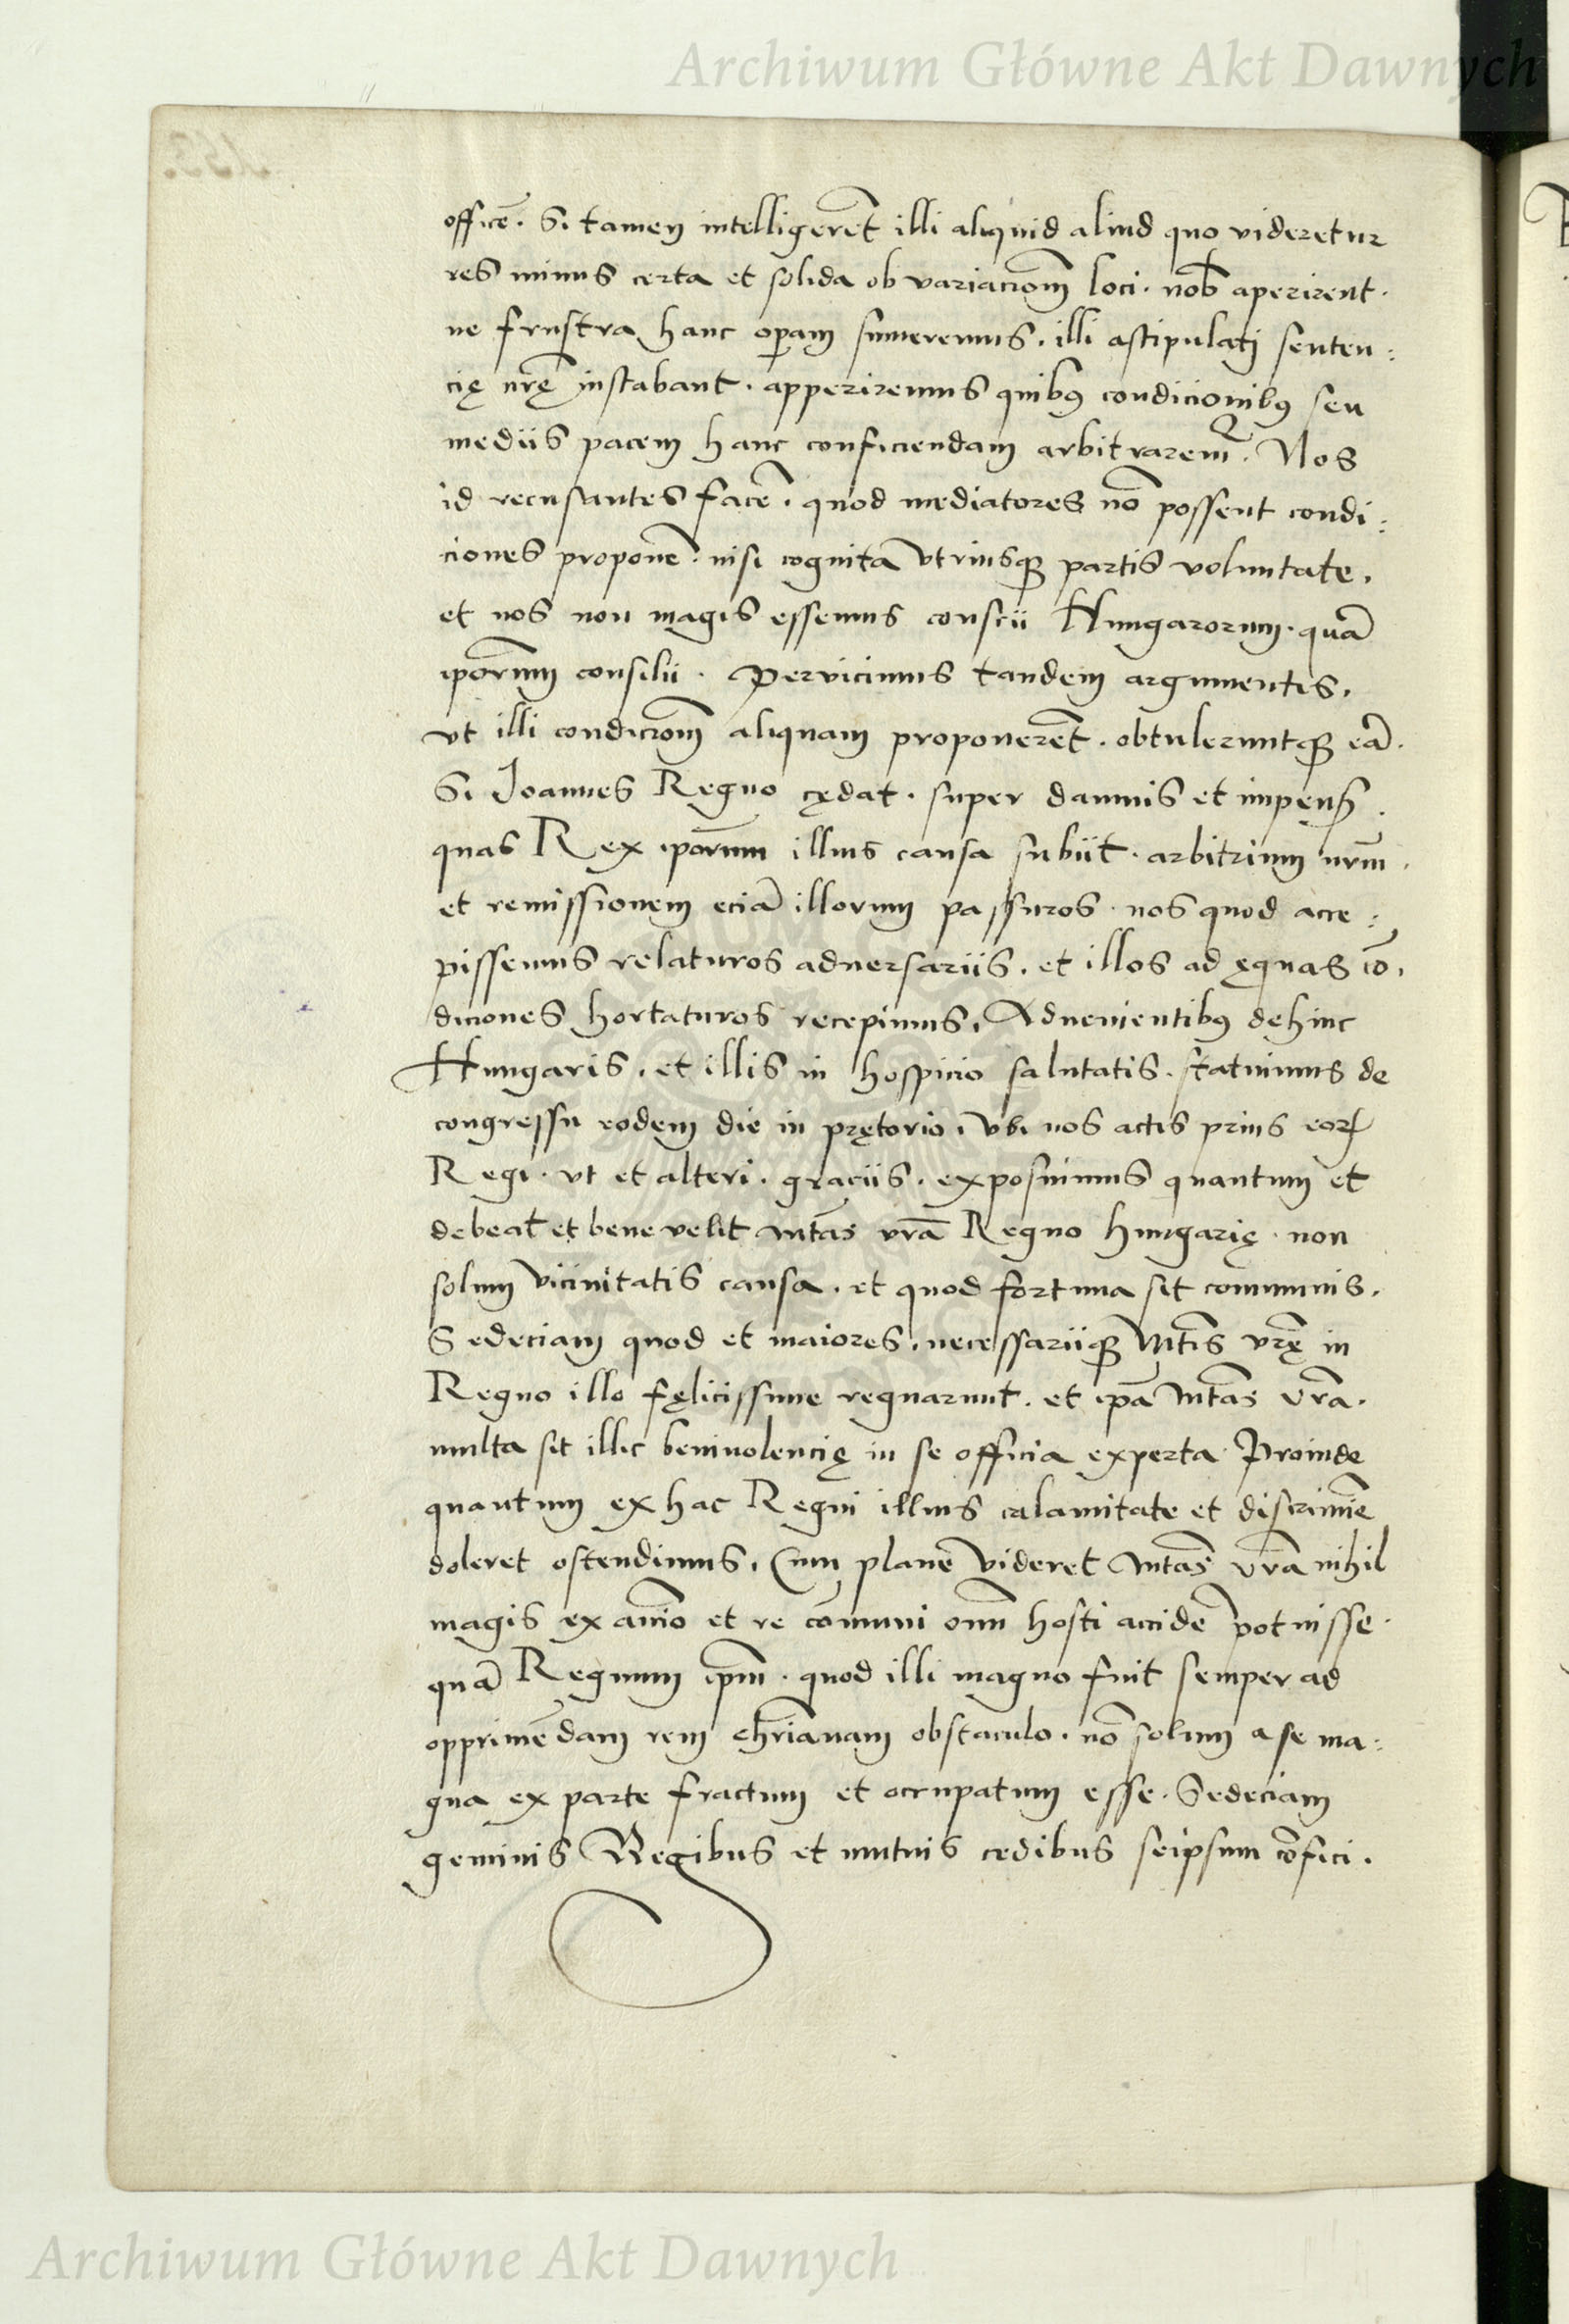 Archiwum Główne Akt Dawnych
officē. Si tamen intelligerēt illi aliquid aliud quo videretur
res minus certa et solida ob variaciōm loci. nob̄ aperirent.
ne frustra hanc op̄am sumeremus. illi astipulati senten:
cię nr̄ę instabant. apperiremus quibꝰ condicionibꝰ seu
mediis pacem hanc conficiendam arbitraremͬ. Nos
id recusantes facē. quod mediatores nō possent condi:
ciones proponē. nisi cognita vtriusqꝫ partis voluntate.
et nos non magis essemus conscii Hungarorum. quā
ip̄orum consilii. Pervicimus tandem argumentis.
vt illi condiciōm aliquam proponerēt. obtuleruntqꝫ eā.
Si Joannes Regno cędat. super damnis et impens̄.
quas Rex ip̄orum illius causa subiit. arbitrium nr̄m.
et remissionem eciā illorum passuros. nos quod acce:
pissemus relaturos aduersariis. et illos ad ęquas cō.
diciones hortaturos recepimus. Aduenientibꝰ dehinc
Hungaris. et illis in hospicio salutatis. statuimus de
congressu eodem die in prętorio. vbi nos actis prius eoꝝ
Regi. vt et alteri. graciis. exposuimus quantum et
debeat et bene velit Mtās vr̄a Regno Hungarię. non
solum vicinitatis causa. et quod fortuna sit communis.
Sedeciam quod et maiores. necessariiqꝫ Mtīs vr̄ę in
Regno illo fęlicissime regnarunt. et ip̄a Mtās vr̄a.
multa sit illic beniuolencię in se officia experta. Proinde
quantum ex hac Regni illius calamitate et discrimīe
doleret ostendimus. Cum planē videret Mtās vr̄a nihil
magis ex anīo et re cōmuni om̄i hosti accidē potuisse.
quā Regnum ip̄m. quod illi magno fuit semper ad
opprimēdam rem chr̄ianam obstaculo. nō solum a se ma:
gna ex parte fractum et occupatum esse. Sedeciam
geminis Regibus et mutuis cedibus seipsum cōfici.
Archiwum Główne Akt Dawnych